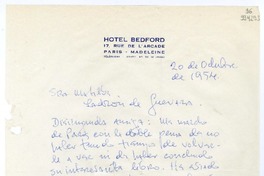 HOTEL BEDFORD
17, RUE DE L'ARCADE
PARIS - MADELEINE
20 de Octubre
de 1954
Sra Matilde
Ladrón de Guevara.
Distinguida amiga: Me marcho
de París con la doble pena de no
haber tenido tiempo de volver
a ver ni de haber concluido
su interesante libro. Ha sido